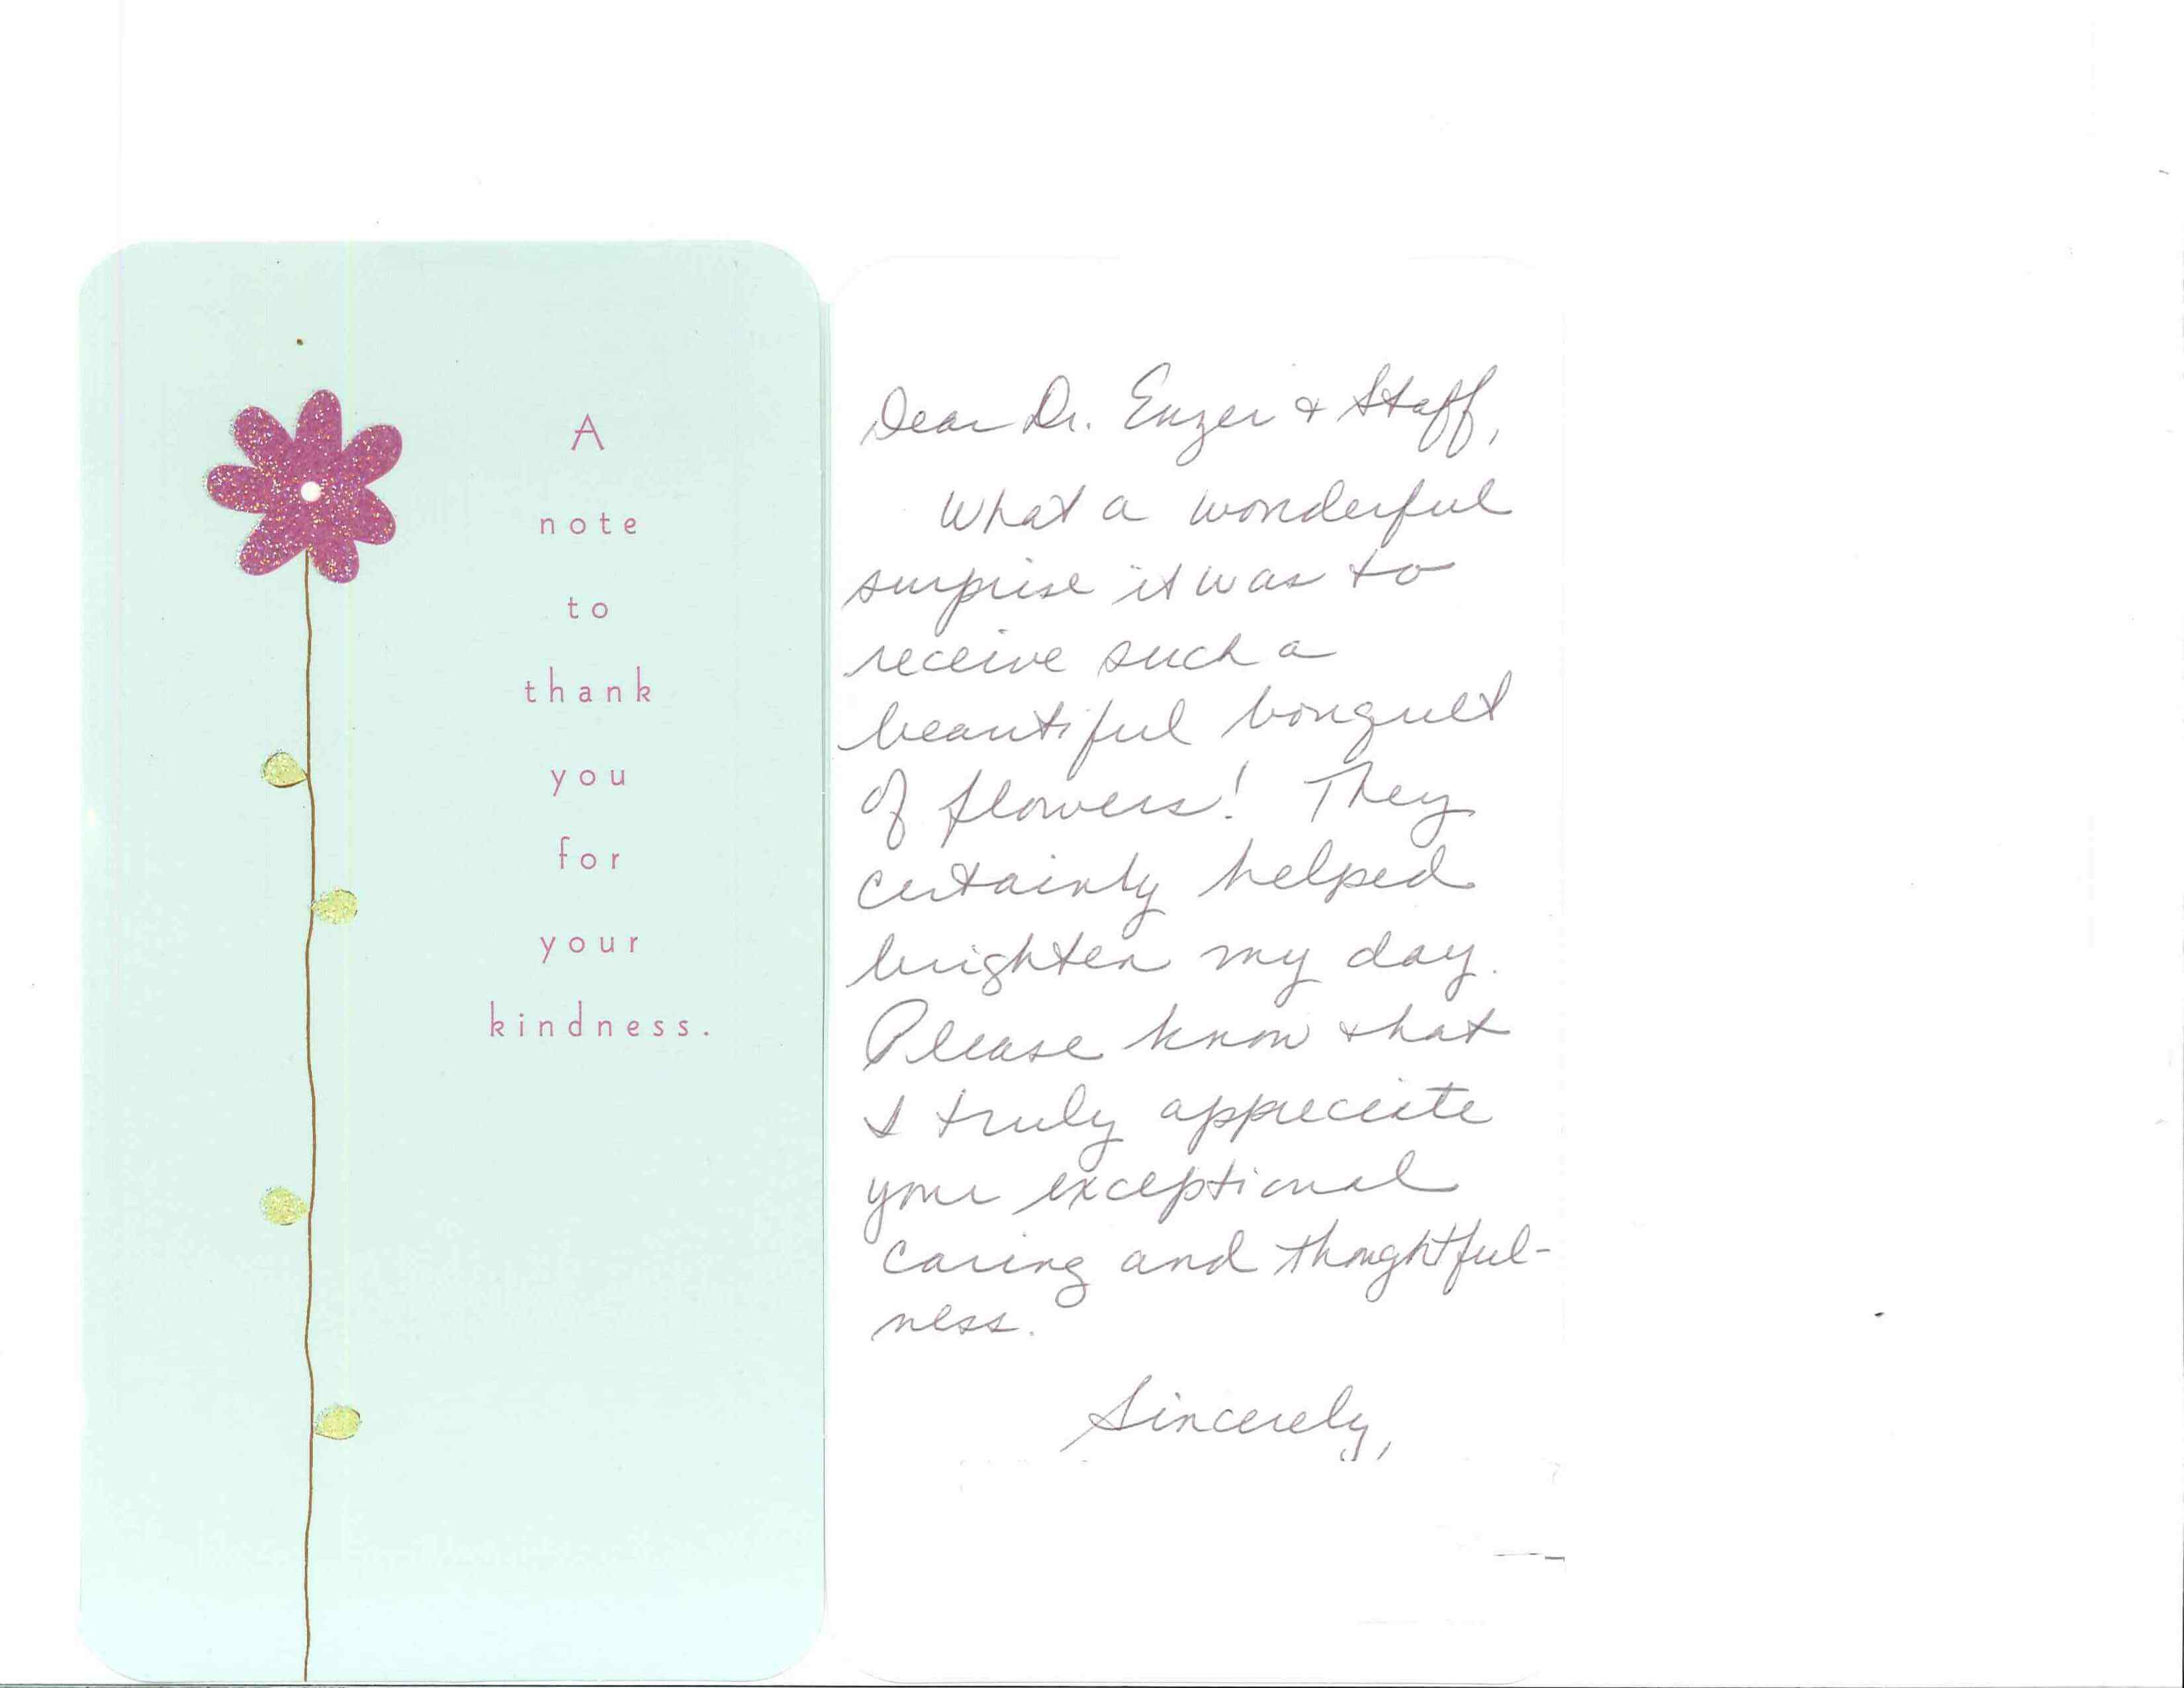 A
note
to
thank
you
for
your
kindness.
Dear Dr. Enzer & Staff,
What a wonderful
surprise it was to
receive such a
beautiful bouquet
of flowers! They
certainly helped
brighten my day.
Please know that
I truly appreciate
your exceptional
caring and thoughtful-
ness.
Sincerely,